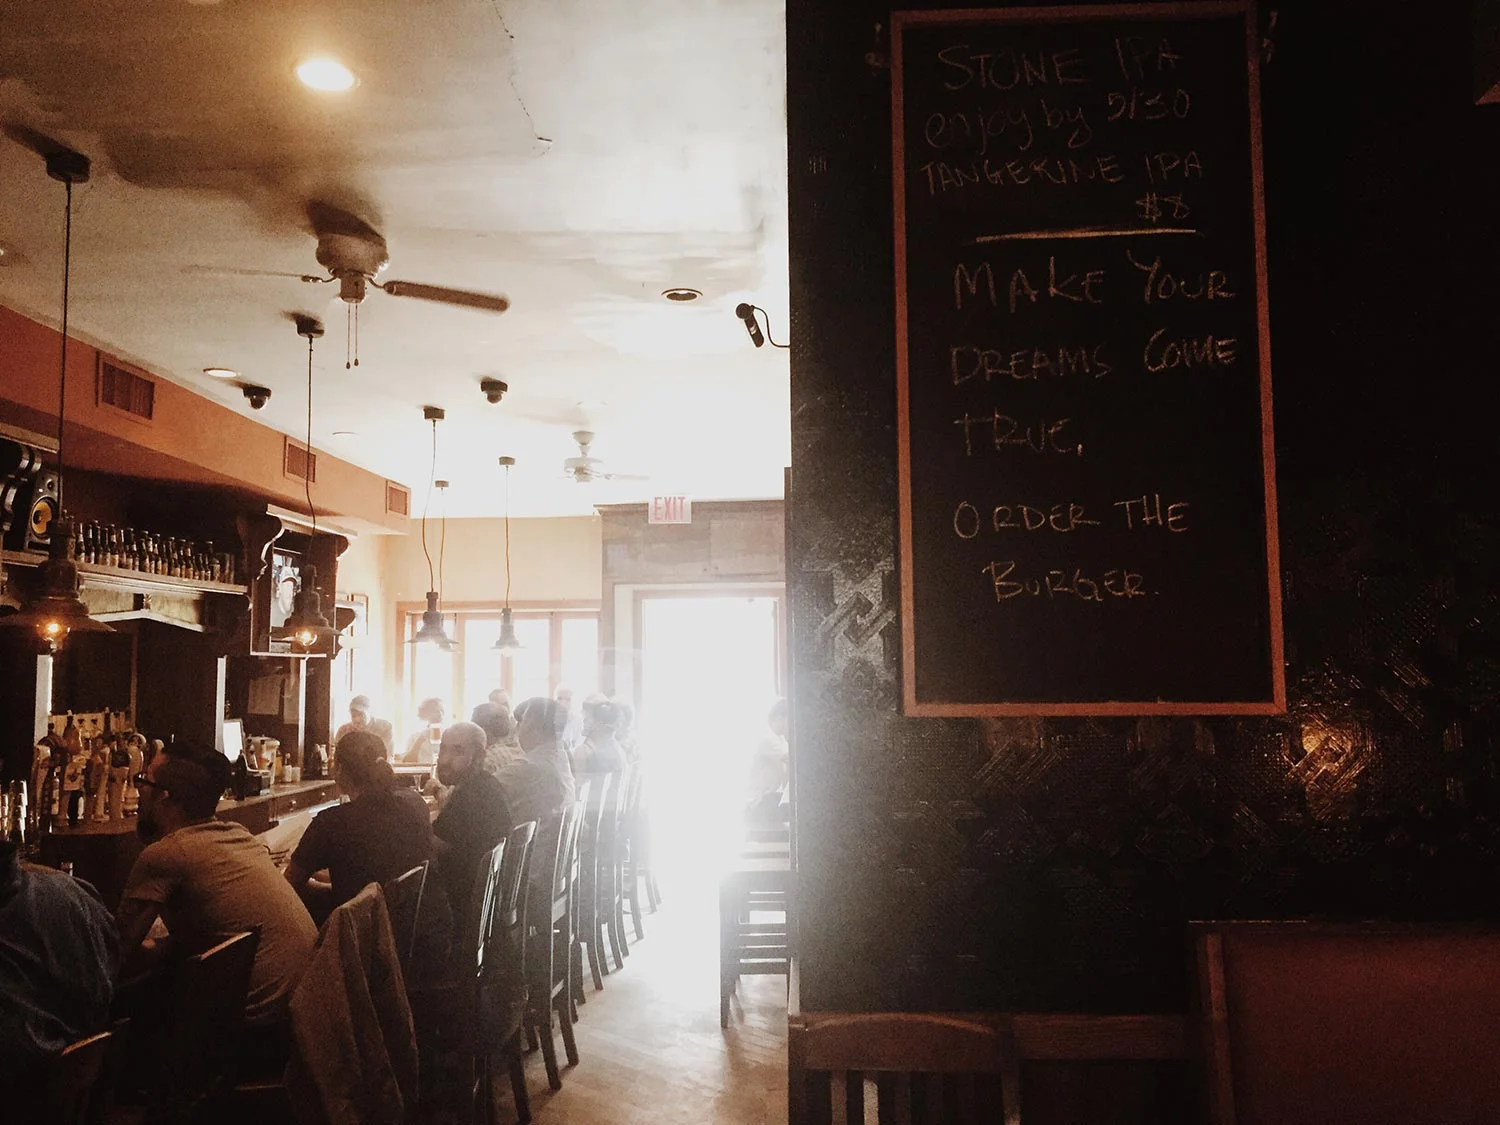 STONE IPA
enjoy by 5/30
TANGERINE IPA
$8
MAKE YOUR
DREAMS COME
TRUE,
ORDER THE
BURGER.
EXIT